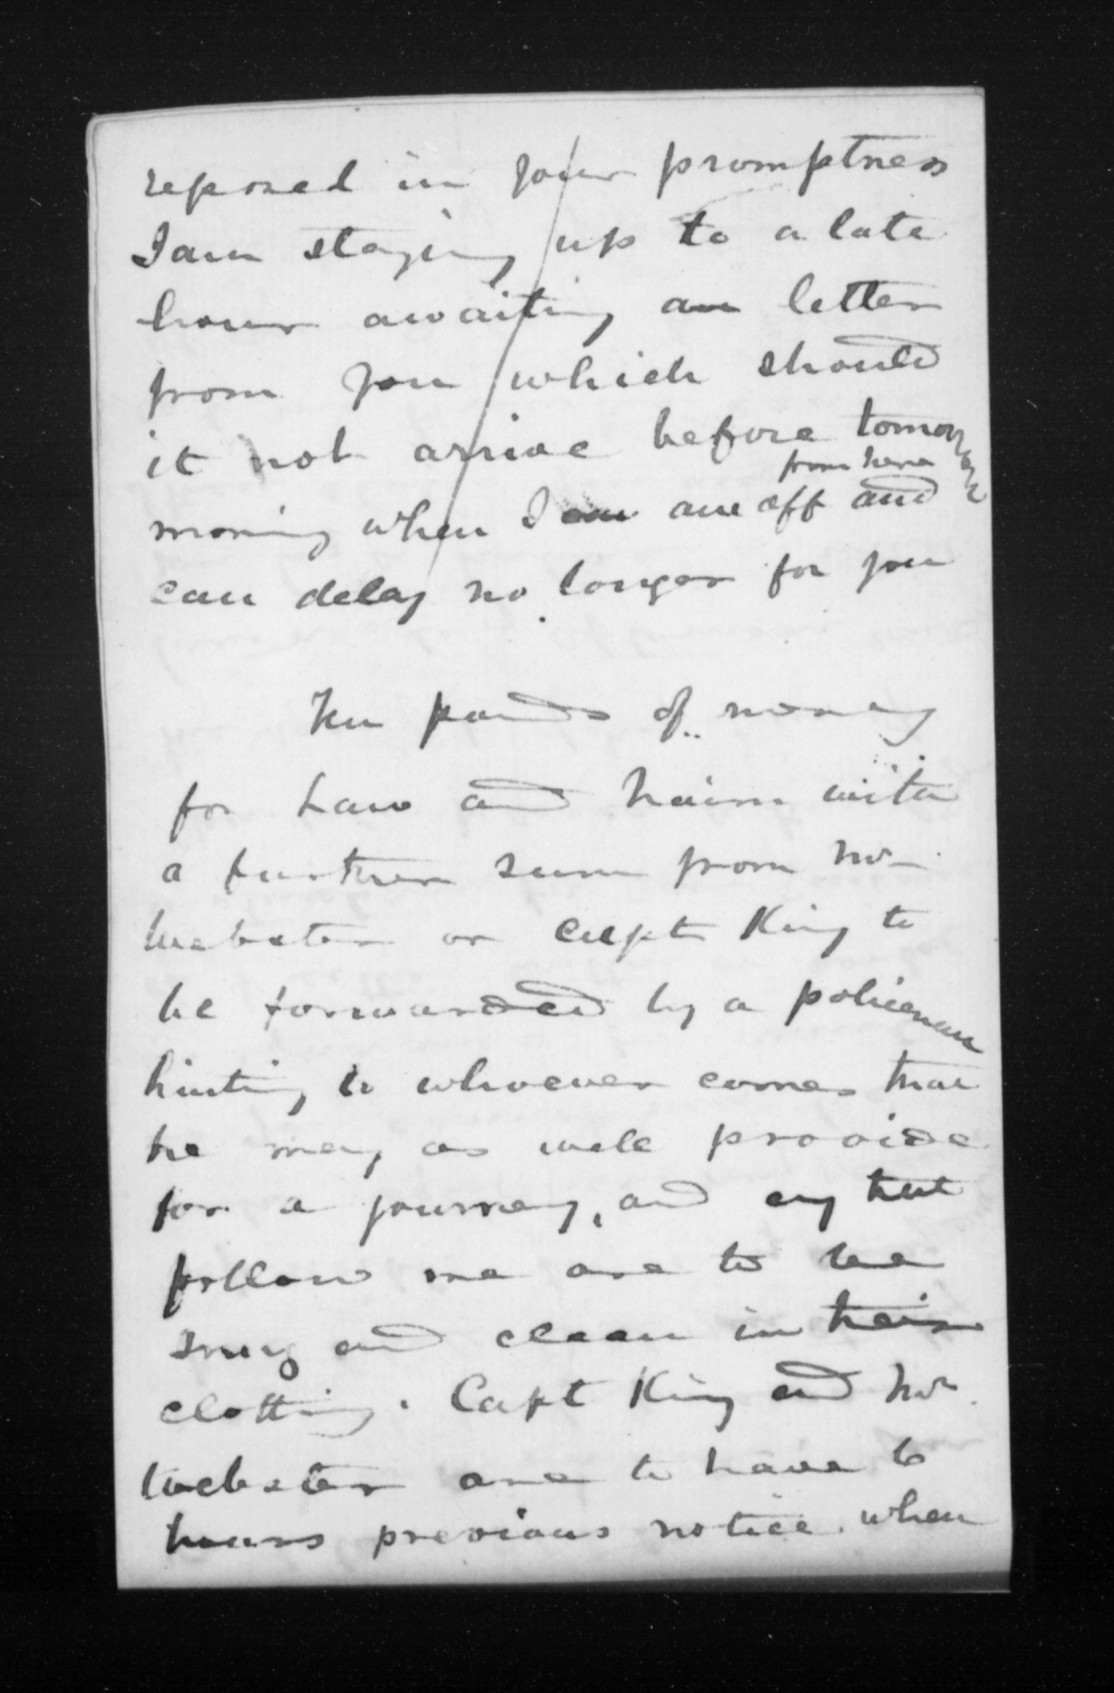 reposed in your promptness
I am staying up to a late
hour awaiting an letter
from you which should
it not arrive before tomorrow
from here
morning when I am off and
can delay no longer for you
Ten pounds of money
for Law and with
a further sum from Mr
Webster or Capt King to
be forwarded by a policeman
hinting to whoever comes that
he may as well provide
for a journey, and any that
follow me are to be
snug and clean in their
clothing. Capt King and Mr
Webster are to have 6
hours previous notice when